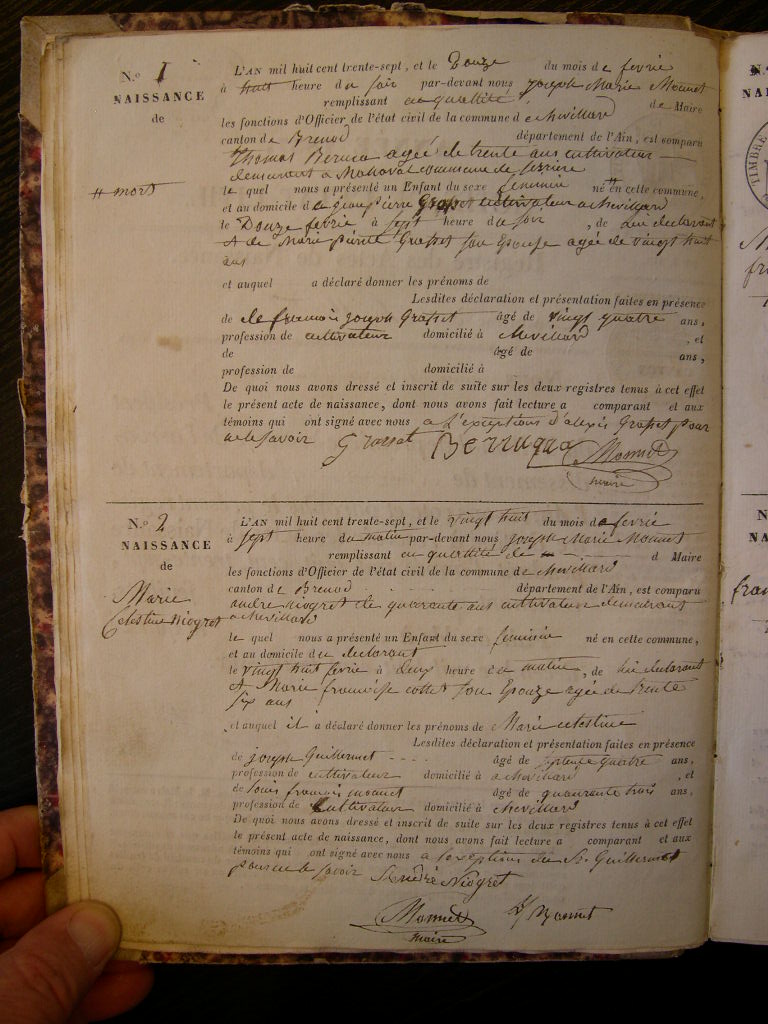 N.º 1
NAISSANCE
de
# mort
L'AN mil huit cent trente-sept, et le Douze du mois de fevrié
à huit heure du soir par-devant nous joseph Marie Monnet
remplissant en quallité de Maire
les fonctions d'Officier de l'état civil de la commune de chevillard
canton de Brenod département de l'Ain, est comparu
thomas Berruca agée de trente ans cultivateur
demeurant a commune de
le quel nous a présenté un Enfant du sexe feminin né en cette commune,
et au domicile de jean pierre Grosset cultivateur a chevillard
le Douze fevrié à sept heure du soir, de lui declarant
et de Marie Grosset son Epouse agée de vingt huit
ans
et auquel a déclaré donner les prénoms de
Lesdites déclaration et présentation faites en présence
de de francois joseph Grosset âgé de vingt quatre ans,
profession de cultivateur domicilié à chevillard, et
de âgé de ans,
profession de domicilié à
De quoi nous avons dressé et inscrit de suite sur les deux registres tenus à cet effet
le présent acte de naissance, dont nous avons fait lecture a comparant et aux
témoins qui ont signé avec nous a l'exceptions d'alexis Grosset pour
ne le savoir Grosset Berruqua Monnet
maire
N.º 2
NAISSANCE
de
Marie
Celestine Niogret
L'AN mil huit cent trente-sept, et le vingt huit du mois de fevrié
à sept heure du matin par-devant nous joseph Marie Monnet
remplissant en quallité de d Maire
les fonctions d'Officier de l'état civil de la commune de chevillard
canton de Brenod département de l'Ain, est comparu
andre Niogret de quarante ans cultivateur demeurant
a chevillard
le quel nous a présenté un Enfant du sexe feminin né en cette commune,
et au domicile du declarant
le vingt huit fevrié à deux heure du matin, de lui declarant
et Marie francoise cottet son Epouze agée de trente
six ans
et auquel il a déclaré donner les prénoms de Marie celestine
Lesdites déclaration et présentation faites en présence
de joseph Guillermet âgé de septente quatre ans,
profession de cultivateur domicilié à a chevillard, et
de louis francois monnet âgé de quaurante trois ans,
profession de Cultivateur domicilié à chevillard
De quoi nous avons dressé et inscrit de suite sur les deux registres tenus à cet effet
le présent acte de naissance, dont nous avons fait lecture a comparant et aux
témoins qui ont signé avec nous a l'exceptions du Sr Guillermet
pour ne le savoir André Niogret
Monnet Monnet
maire
TIMBRE